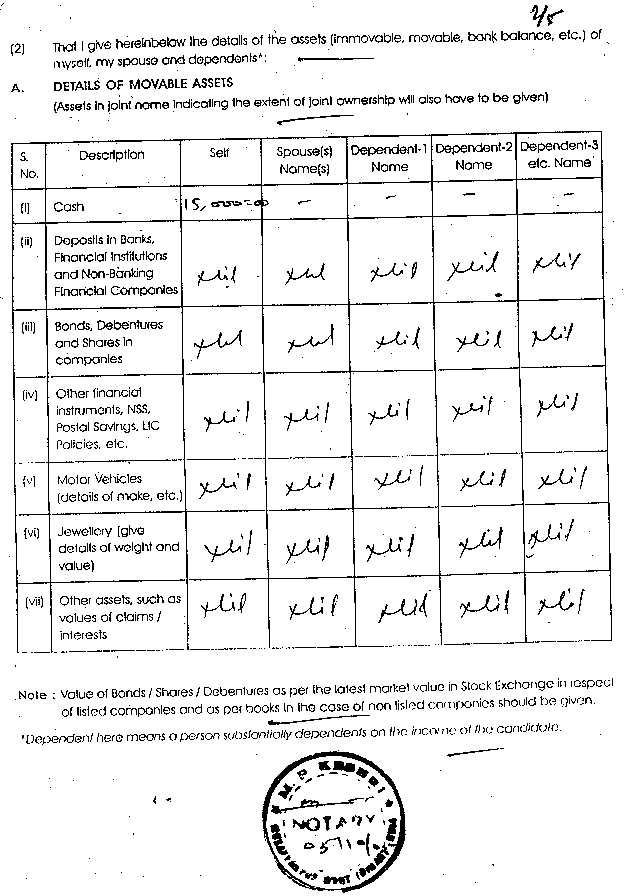 2/5
(2) That I give hereinbelow the details of the assets (immovable, movable, bank balance, etc.) of
myself, my spouse and dependents*:
A. DETAILS OF MOVABLE ASSETS
(Assets in joint name indicating the extent of joint ownership will also have to be given)
S. No. Description Self Spouse(s) Name(s) Dependent-1 Name Dependent-2 Name Dependent-3 etc. Name
(i) Cash 15,000=00 – – – –
(ii) Deposits in Banks,
Financial Institutions
and Non-Banking
Financial Companies Nil Nil Nil Nil Nil
(iii) Bonds, Debentures
and Shares in
companies Nil Nil Nil Nil Nil
(iv) Other financial
instruments, NSS,
Postal Savings, LIC
Policies, etc. Nil Nil Nil Nil Nil
(v) Motor Vehicles
(details of make, etc.) Nil Nil Nil Nil Nil
(vi) Jewellery (give
details of weight and
value) Nil Nil Nil Nil Nil
(vii) Other assets, such as
values of claims /
interests Nil Nil Nil Nil Nil
Note : Value of Bonds / Shares / Debentures as per the latest market value in Stock Exchange in respect
of listed companies and as per books in the case of non listed companies should be given.
*Dependent here means a person substantially dependents on the income of the candidate.
NOTARY